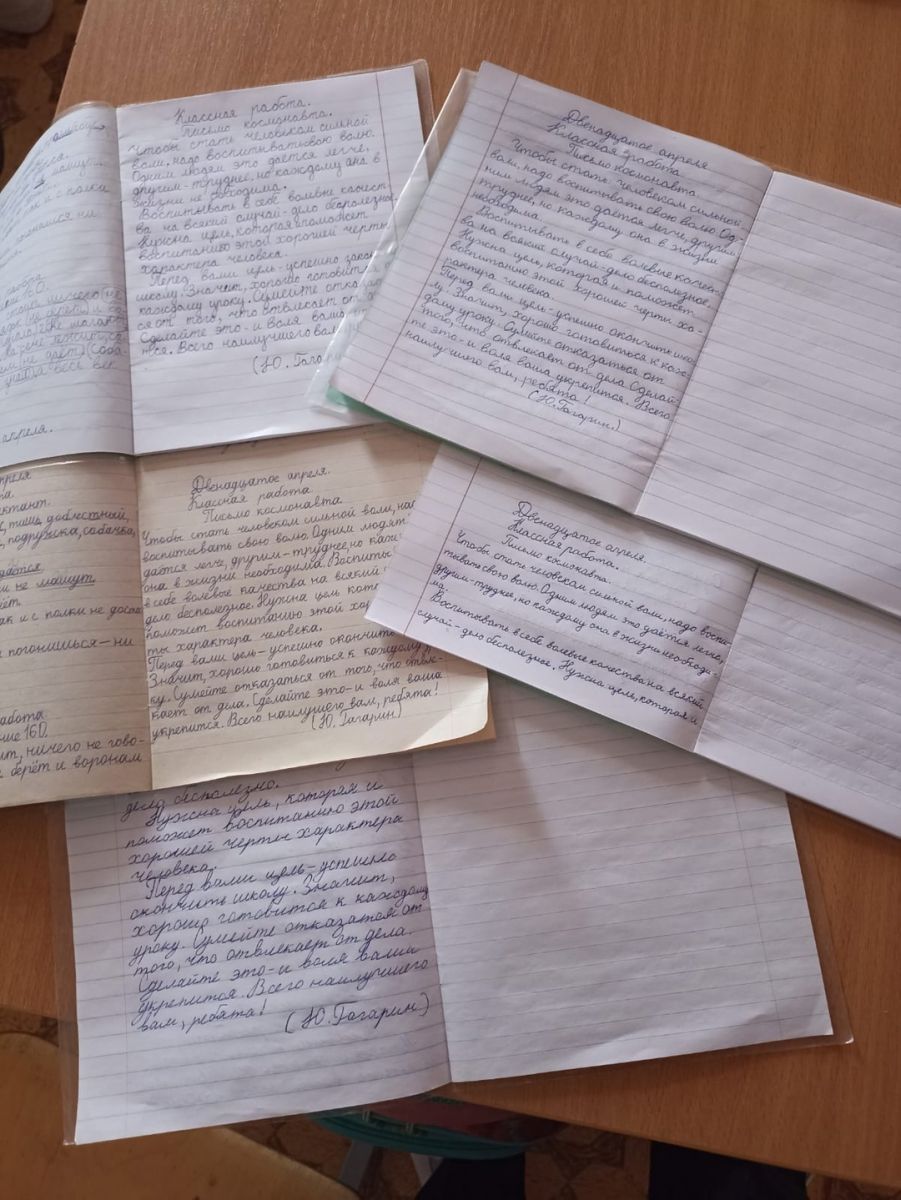 Классная работа.
Письмо космонавта.
Чтобы стать человеком сильной
воли, надо воспитывать свою волю.
Одним людям это даётся легче,
другим - труднее, но каждому она в
жизни необходима.
Воспитывать в себе волевые качест-
ва на всякий случай - дело бесполезное.
Нужна цель, которая и поможет
воспитанию этой хорошей черты
характера человека.
Перед вами цель - успешно
школу. Значит, хорошо готовиться
каждому уроку. Сумейте отказать
ся от того, что отвлекает от
Сделайте это - и воля ваша
тся. Всего наилучшего вам
(Ю. Гагарин
апреля.
Двенадцатое апреля
Классная работа
Письмо космонавта
Чтобы стать человеком сильной
воли, надо воспитывать свою волю. Од-
ним людям это даётся легче, другим -
труднее, но каждому она в жизни
необходима.
Воспитывать в себе волевые качест-
ва на всякий случай - дело бесполезное.
Нужна цель, которая и поможет
воспитанию этой хорошей черты ха-
рактера человека.
Перед вами цель - успешно окончить шко-
лу. Значит, хорошо готовиться к каж-
дому уроку. Сумейте отказаться от
того, что отвлекает от дела. Сделай-
те это - и воля ваша укрепится. Всего
наилучшего вам, ребята!
(Ю. Гагарин.)
диктант.
тишь, доблестный,
подружка, собачка,
и не машут.
так и с полки не доста
погонишься - ни
работа.
ние 160.
ничего не гово-
берёт и воронам
Двенадцатое апреля.
Классная работа.
Письмо космонавта.
Чтобы стать человеком сильной воли, над
воспитывать свою волю. Одним людям
даётся легче, другим - труднее, но каж
она в жизни необходима. Воспиты
в себе волевые качества на всякий
дело бесполезное. Нужна цель, кото
поможет воспитанию этой хор
ты характера человека.
Перед вами цель - успешно окончить
Значит, хорошо готовиться к каждому у
ку. Сумейте отказаться от того, что отвле-
кает от дела. Сделайте это - и воля ваша
укрепится. Всего наилучшего вам, ребята!
(Ю. Гагарин)
Двенадцатое апреля.
Классная работа.
Письмо космонавта.
Чтобы стать человеком сильной воли, надо воспи-
тывать свою волю. Одним людям это даётся легче,
другим - труднее, но каждому она в жизни необходи-
ма.
Воспитывать в себе волевые качества на всякий
случай - дело бесполезное. Нужна цель, которая и
дело бесполезно.
Нужна цель, которая и
поможет воспитанию этой
хорошей черты характера
человека.
Перед вами цель - успешно
окончить школу. Значит,
хорошо готовится к каждому
уроку. Сумейте отказатся от
того, что отвлекает от дела.
Сделайте это - и воля ваша
укрепится. Всего наилучшего
вам, ребята!
(Ю. Гагарин)